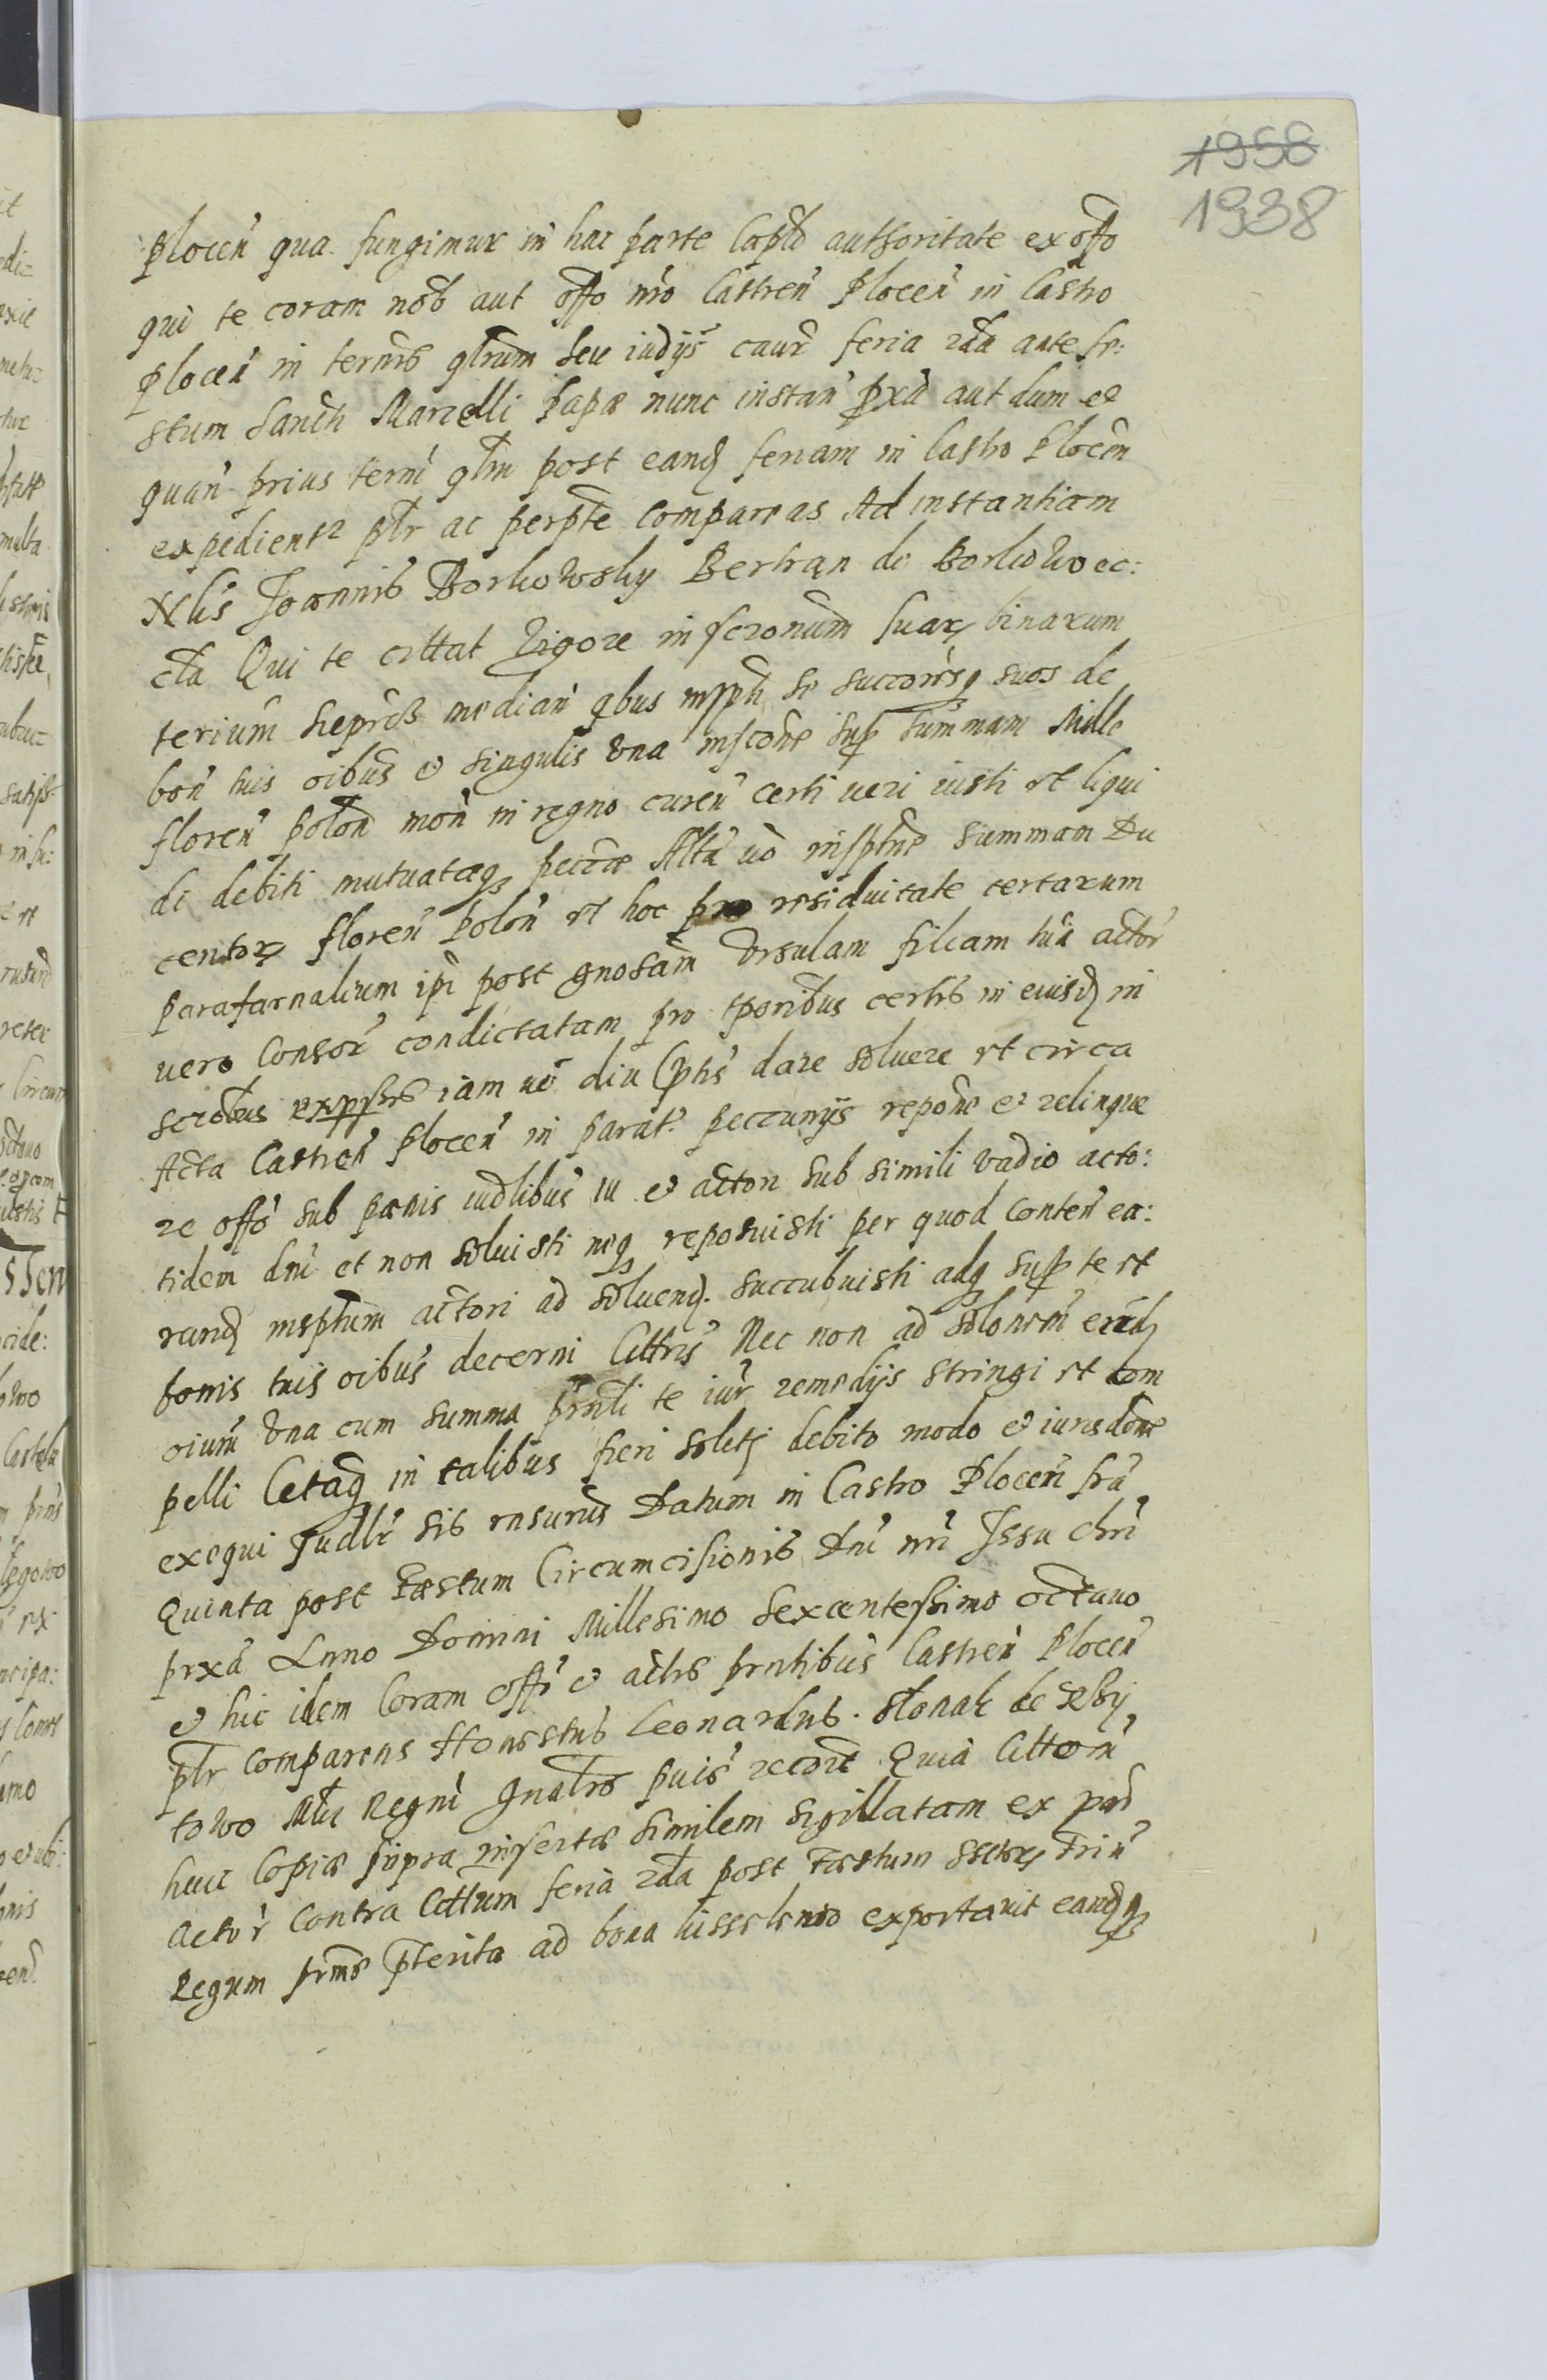 1958
1938
plocen qua fungimur in hac parte Capld authoritate ex offo
qui te coram nob aut offo nro Castren Plocen in Castro
plocen in termis qlrum seu iudijs caur feria 2da ante fe:
stum Sancti Marcelli Papæ nunc instan pxa aut dum et
quan prius termi qlm post eand feriam in Castro Plocen
expedient plr ac perpte Compareas Ad instantiam
Nlis Joannis Borkowsky Bertran de Borkowo ec:
cta Qui te cittat Vigore inscronum suar binarum
terium median qbus insph se succoresq suos de
bon tuis oibus et singulis Vna inscrone sup summam Mille
floren polon mon in regno curen certi veri iusti et liqui
di debiti mutuatæq peccæ Alta vo insptne summam Du
centor floren polon et hoc pro residuitate certarum
parafarnalium ipi post gnosam Vrsulam filiam tua actor
vero Consor condictatam pro tporibus certis in eiusd in
scrobus expssis iam vo diu pts dare soluere et circa
Acta Castren Plocen in parat peccunijs repone et relinque
re offo sub pænis iudlibus tu et actori sub simili vadio acto:
tidem dni et non soluisti neq reposuisti per quod conten ea:
rand insptum actori ad soluend. succubuisti adq sup te et
bonis tuis oibus decerni Cittris Nec non ad solonem eand
oium Vna cum summa prnli te iur remedijs stringi et com
pelli Cetaq in talibus fieri solets debito modo et iurisdone
exequi Judlr sis Datum in Castro Plocen fra
Quinta post Fæstum Circumcisionis Dni nri Jesu chri
prxa Anno Domini Millesimo Sexcentessimo octauo
et hic idem Coram offo et actis prntibus Castren Plocen
plr comparens Honestus Leonardus
towo Mtr Regni Gnalis puis recort Quia Cittom
huic Copiæ supra insertæ similem sigillatam ex part
Actor Contra Cittum feria 2da post Fæstum Sctor Triu
Regum prms pterita ad bona exportauit eandq